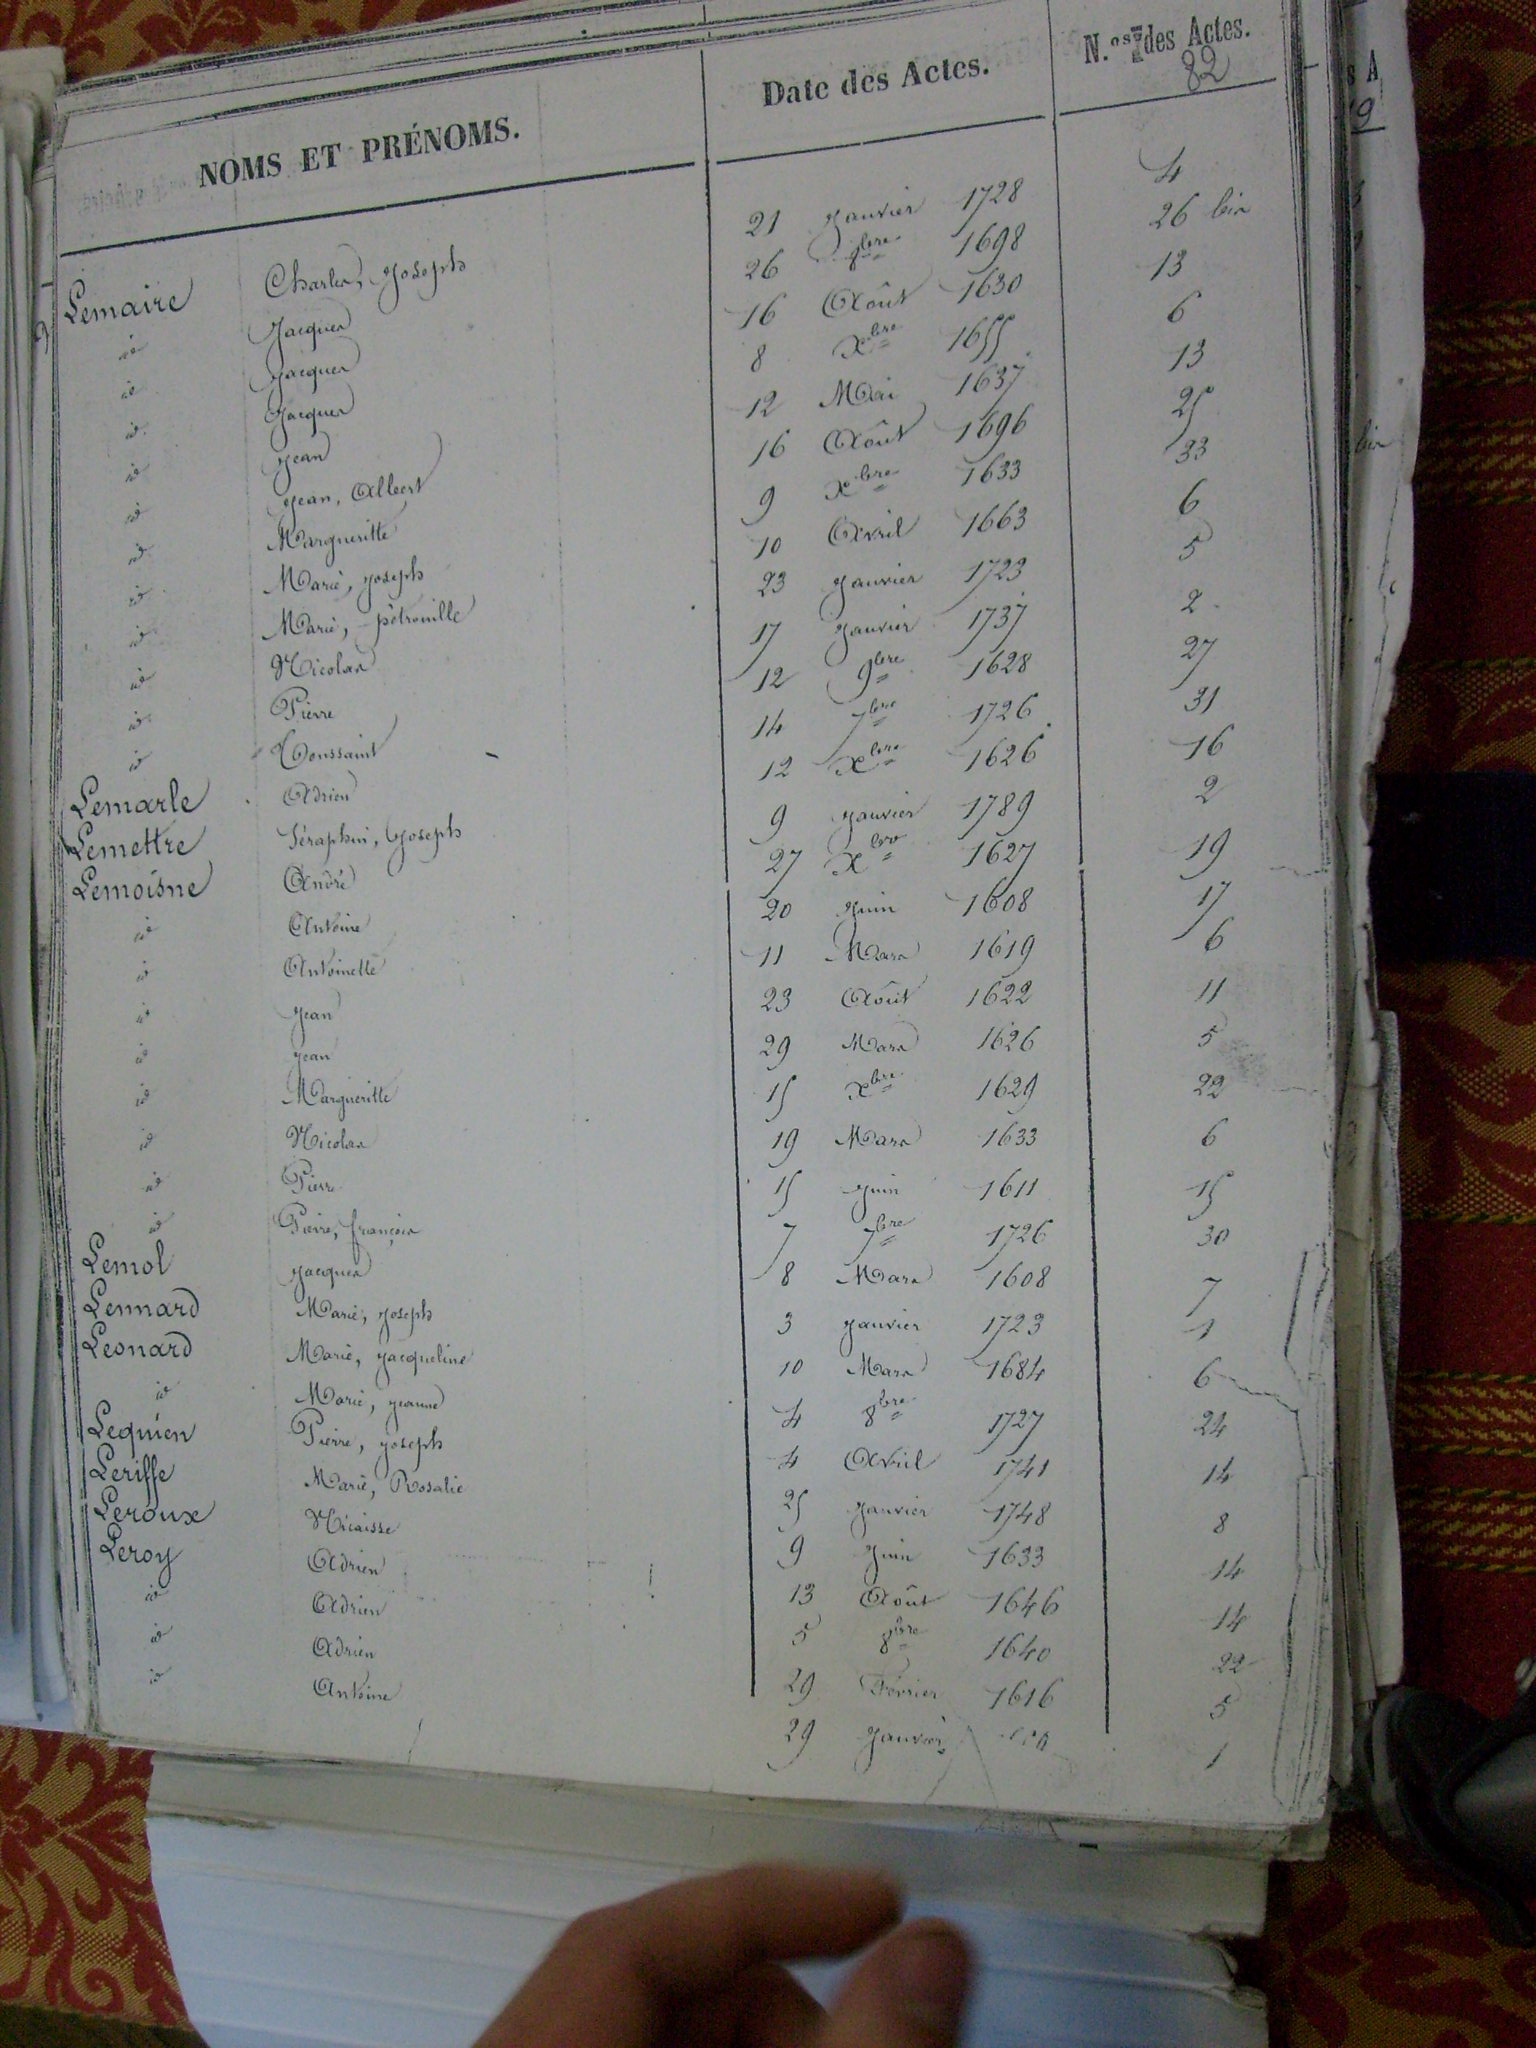 NOMS ET PRÉNOMS. Date des Actes. N.os des Actes.
82
Lemaire Charles, Joseph 21 Janvier 1728 4
id Jacques 26 8bre 1698 26 bis
id Jacques 16 Août 1630 13
id Jacques 8 Xbre 1655 6
id Jean 12 Mai 1637 13
id Jean, Albert 16 Août 1696 25
id Margueritte 9 Xbre 1633 33
id Marie, Joseph 10 Avril 1663 6
id Marie, pétronille 23 Janvier 1723 5
id Nicolas 17 Janvier 1737 2
id Pierre 12 9bre 1628 27
id Toussaint 14 7bre 1726 31
Lemarle Adrien 12 Xbre 1626 16
Lemettre Séraphin, Joseph 9 Janvier 1789 2
Lemoisne André 27 Xbre 1627 19
id Antoine 20 Juin 1608 17
id Antoinette 11 Mars 1619 6
id Jean 23 Août 1622 11
id Jean 29 Mars 1626 5
id Margueritte 15 Xbre 1629 22
id Nicolas 19 Mars 1633 6
id Pierre 15 Juin 1611 15
id Pierre, françois 7 7bre 1726 30
Lemol Jacques 8 Mars 1608 7
Lennard Marie, Joseph 3 Janvier 1723 1
Leonard Marie, Jacqueline 10 Mars 1684 6
id Marie, Jeanne 4 8bre 1727 24
Lequien Pierre, Joseph 4 Avril 1741 14
Leriffe Marie, Rosalie 25 Janvier 1748 8
Leroux Nicaisse 9 Juin 1633 14
Leroy Adrien 13 Août 1646 14
id Adrien 5 8bre 1640 22
id Adrien 29 Février 1616 5
id Antoine 29 Janvier 1